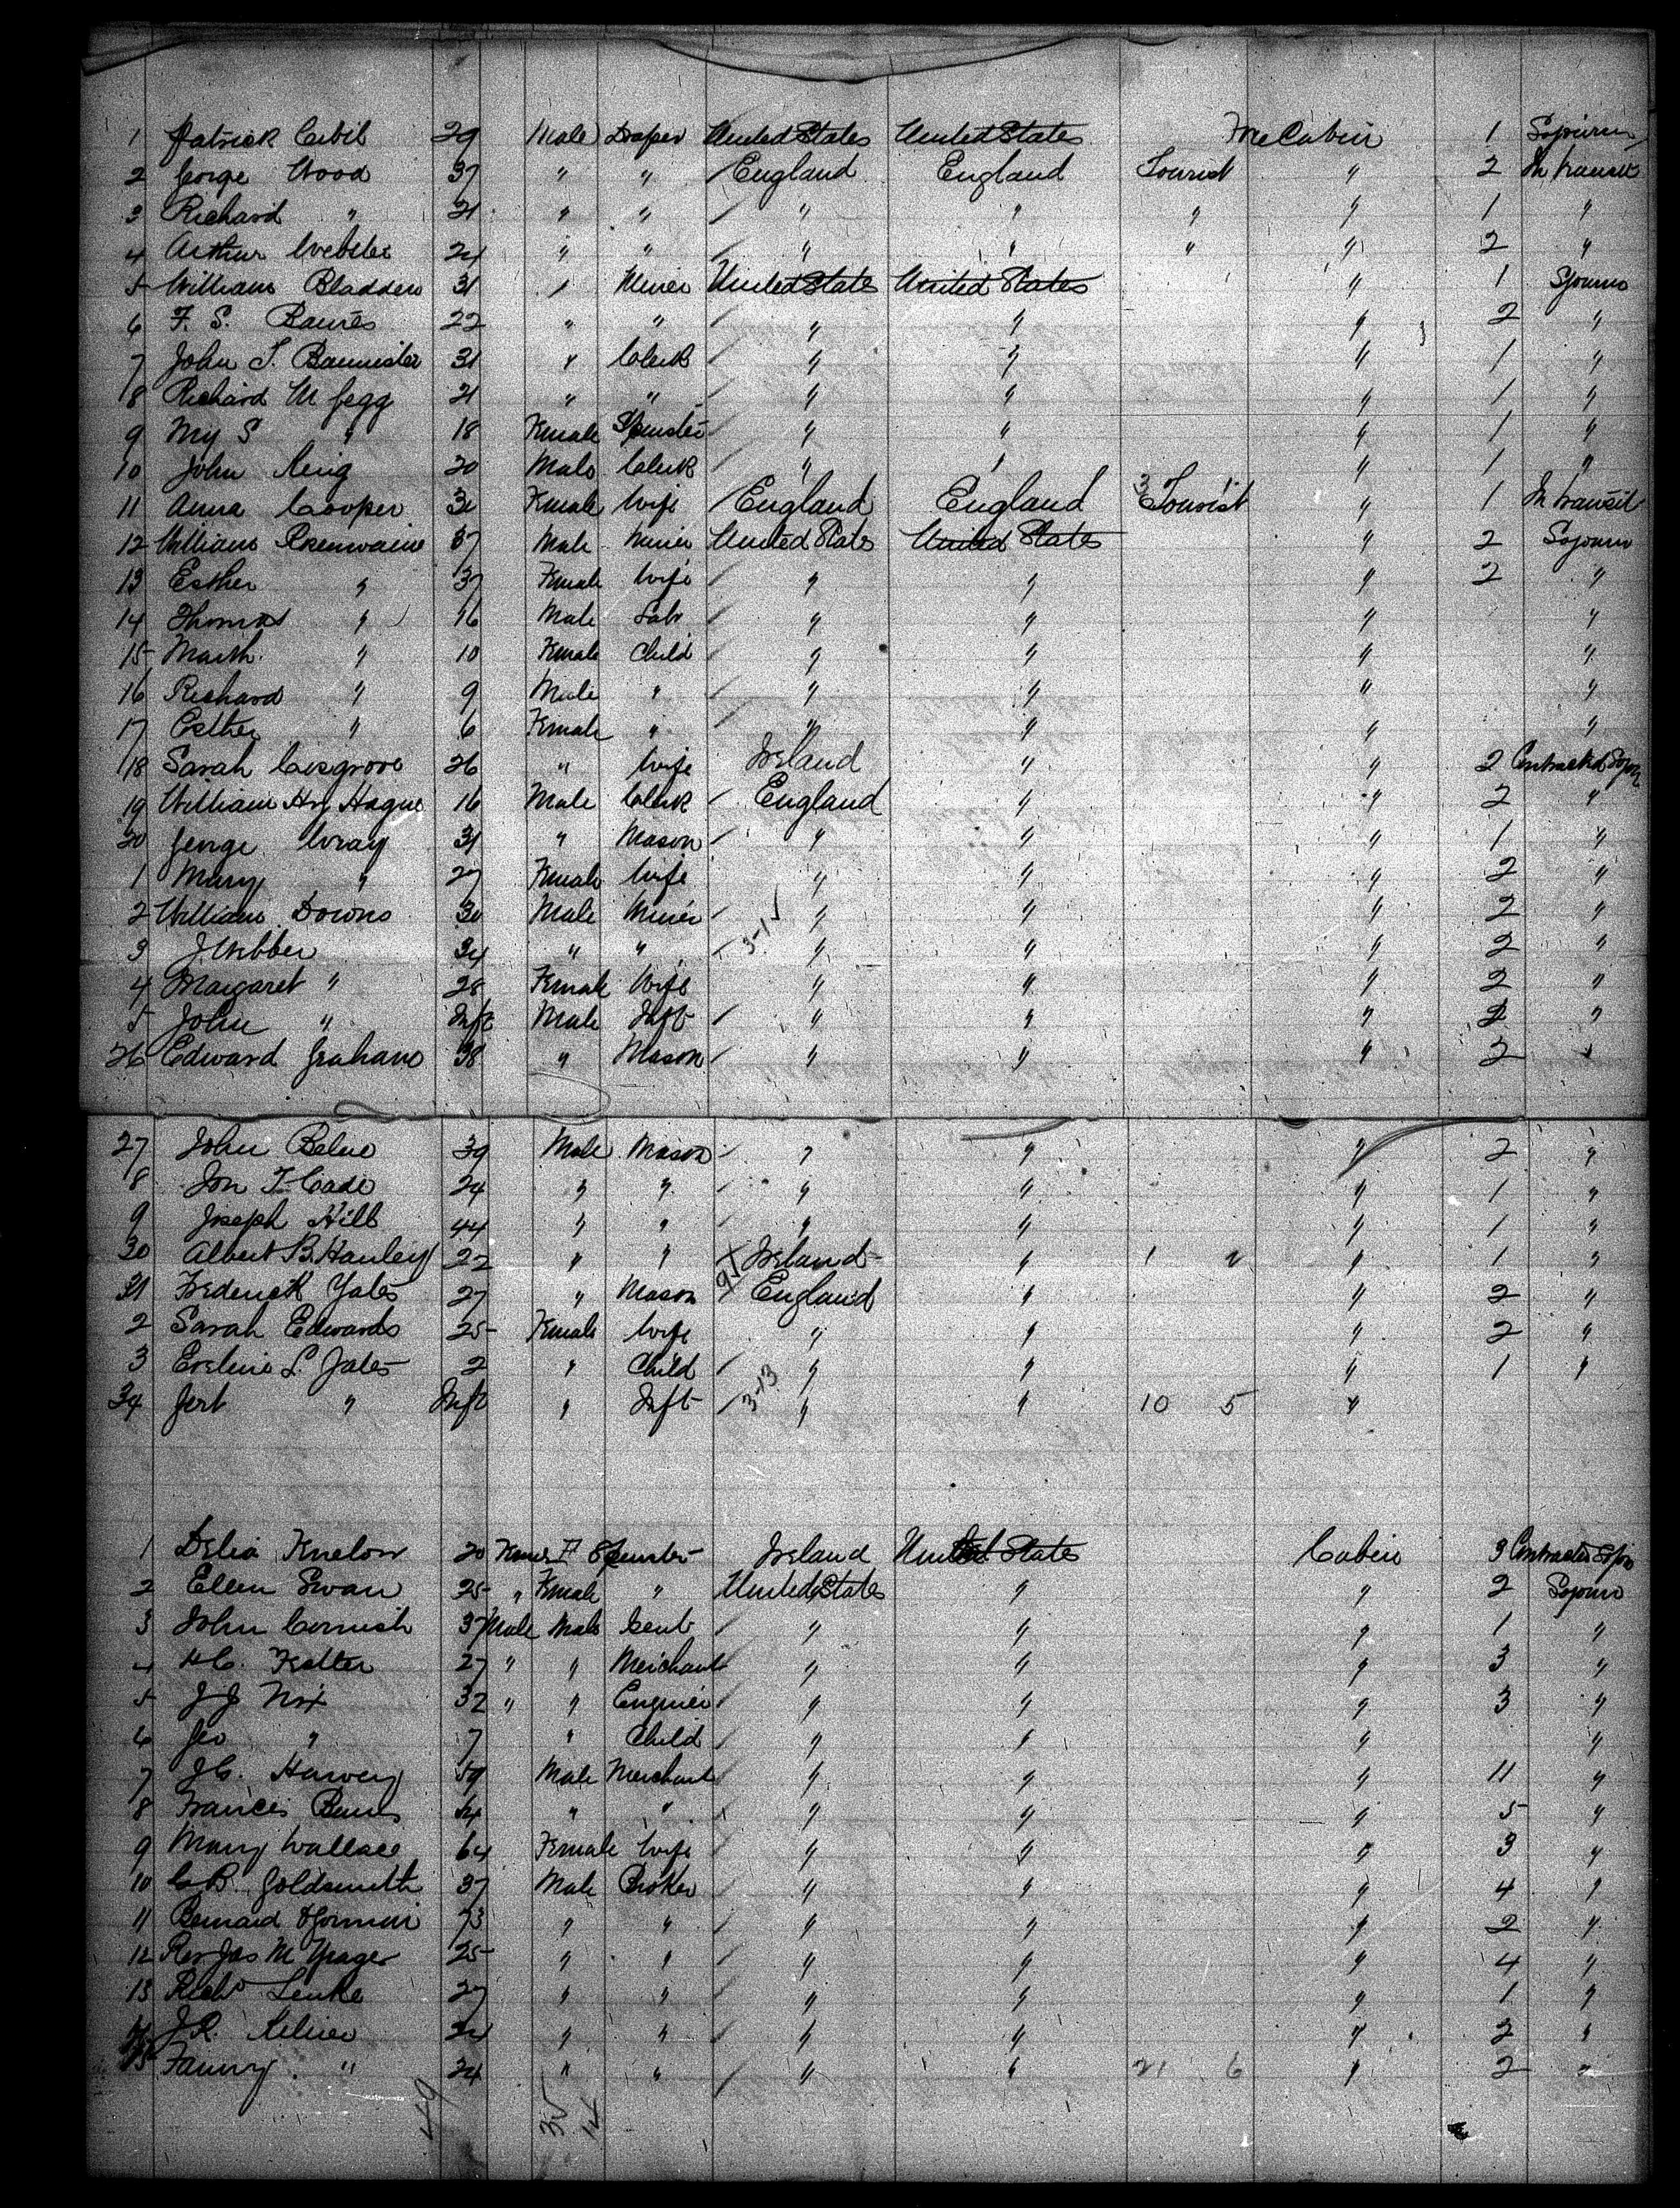 1 Patrick 29 Male Draper United States United States Fre Cabin 1 Sojourn
2 George Wood 37 " " England England Tourist " 2 In transit
3 Richard " 21 " " " " " " 1 "
4 Arthur Webster 24 " " " " " " 2 "
5 William Bladden 31 " Miner United States United States " 1 Sojourn
6 F. S. 22 " " " " " 2 "
7 John T. Bannister 31 " Clerk " " " 1 "
8 Richard M Gegg 21 " " " " " 1 "
9 My S " 18 Female Spinster " " " 1 "
10 John 20 Male Clerk " " " 1 "
11 Anna Cooper 30 Female Wife England England 3 Tourist " 1 In transit
12 William Rosenwaine 37 Male Miner United States United States " 2 Sojourn
13 Esther " 37 Female Wife " " " 2 "
14 Thomas " 16 Male Labr " " " "
15 " 10 Female Child " " " "
16 Richard " 9 Male " " " " "
17 Esther " 6 Female " " " " "
18 Sarah Cosgrove 26 " Wife Ireland " " 2 Contracted Sojn
19 William Hy Hague 16 Male Clerk England " " 2 "
20 George Wray 31 " Mason " " " 1 "
1 Mary " 27 Female Wife " " " 2 "
2 William Downs 30 Male Miner " " " 2 "
3 J Webber 34 " " 3-1 " " " 2 "
4 Margaret " 28 Female Wife " " " 2 "
5 John " Inft Male Inft " " " 2 "
26 Edward Graham 38 " Mason " " " 2 "
27 John Belue 39 Male Mason " " " 2 "
8 Jon T Cade 24 " " " " " 1 "
9 Joseph Hill 44 " " " " " 1 "
30 Albert B. Hanley 22 " " Ireland " 1 " " 1 "
31 Frederick Yates 27 " Mason England " " 2 "
2 Sarah Edwards 25 Female Wife " " " 2 "
3 Eveline L. Yates 2 " Child " " " 1 "
34 Gert " Inft " Inft 3-13 " " 10 5 "
1 Delia 20 F Spinster Ireland United States Cabin 3 Contracted Sojn
2 Ellen Swan 25 " Female " United States " " 2 Sojourn
3 John Cornish 37 Male Male Gent " " " 1 "
4 27 " " Merchant " " " 3 "
5 J J Nix 32 " " Engineer " " " 3 "
6 Geo " 7 " Child " " " "
7 J C. Harvey 59 Male Merchant " " " 11 "
8 Francis 54 " " " " " 5 "
9 Mary Wallace 64 Female Wife " " " 3 "
10 C B. Goldsmith 37 Male Broker " " " 4 "
11 Bernard 73 " " " " " 2 "
12 Rev Jas M Yeager 25 " " " " " 4 "
13 Richd 27 " " " " " 1 "
14 J. R. 24 " " " " " 2 "
15 Fanny " 24 " " " " 21 6 " 2 "
49